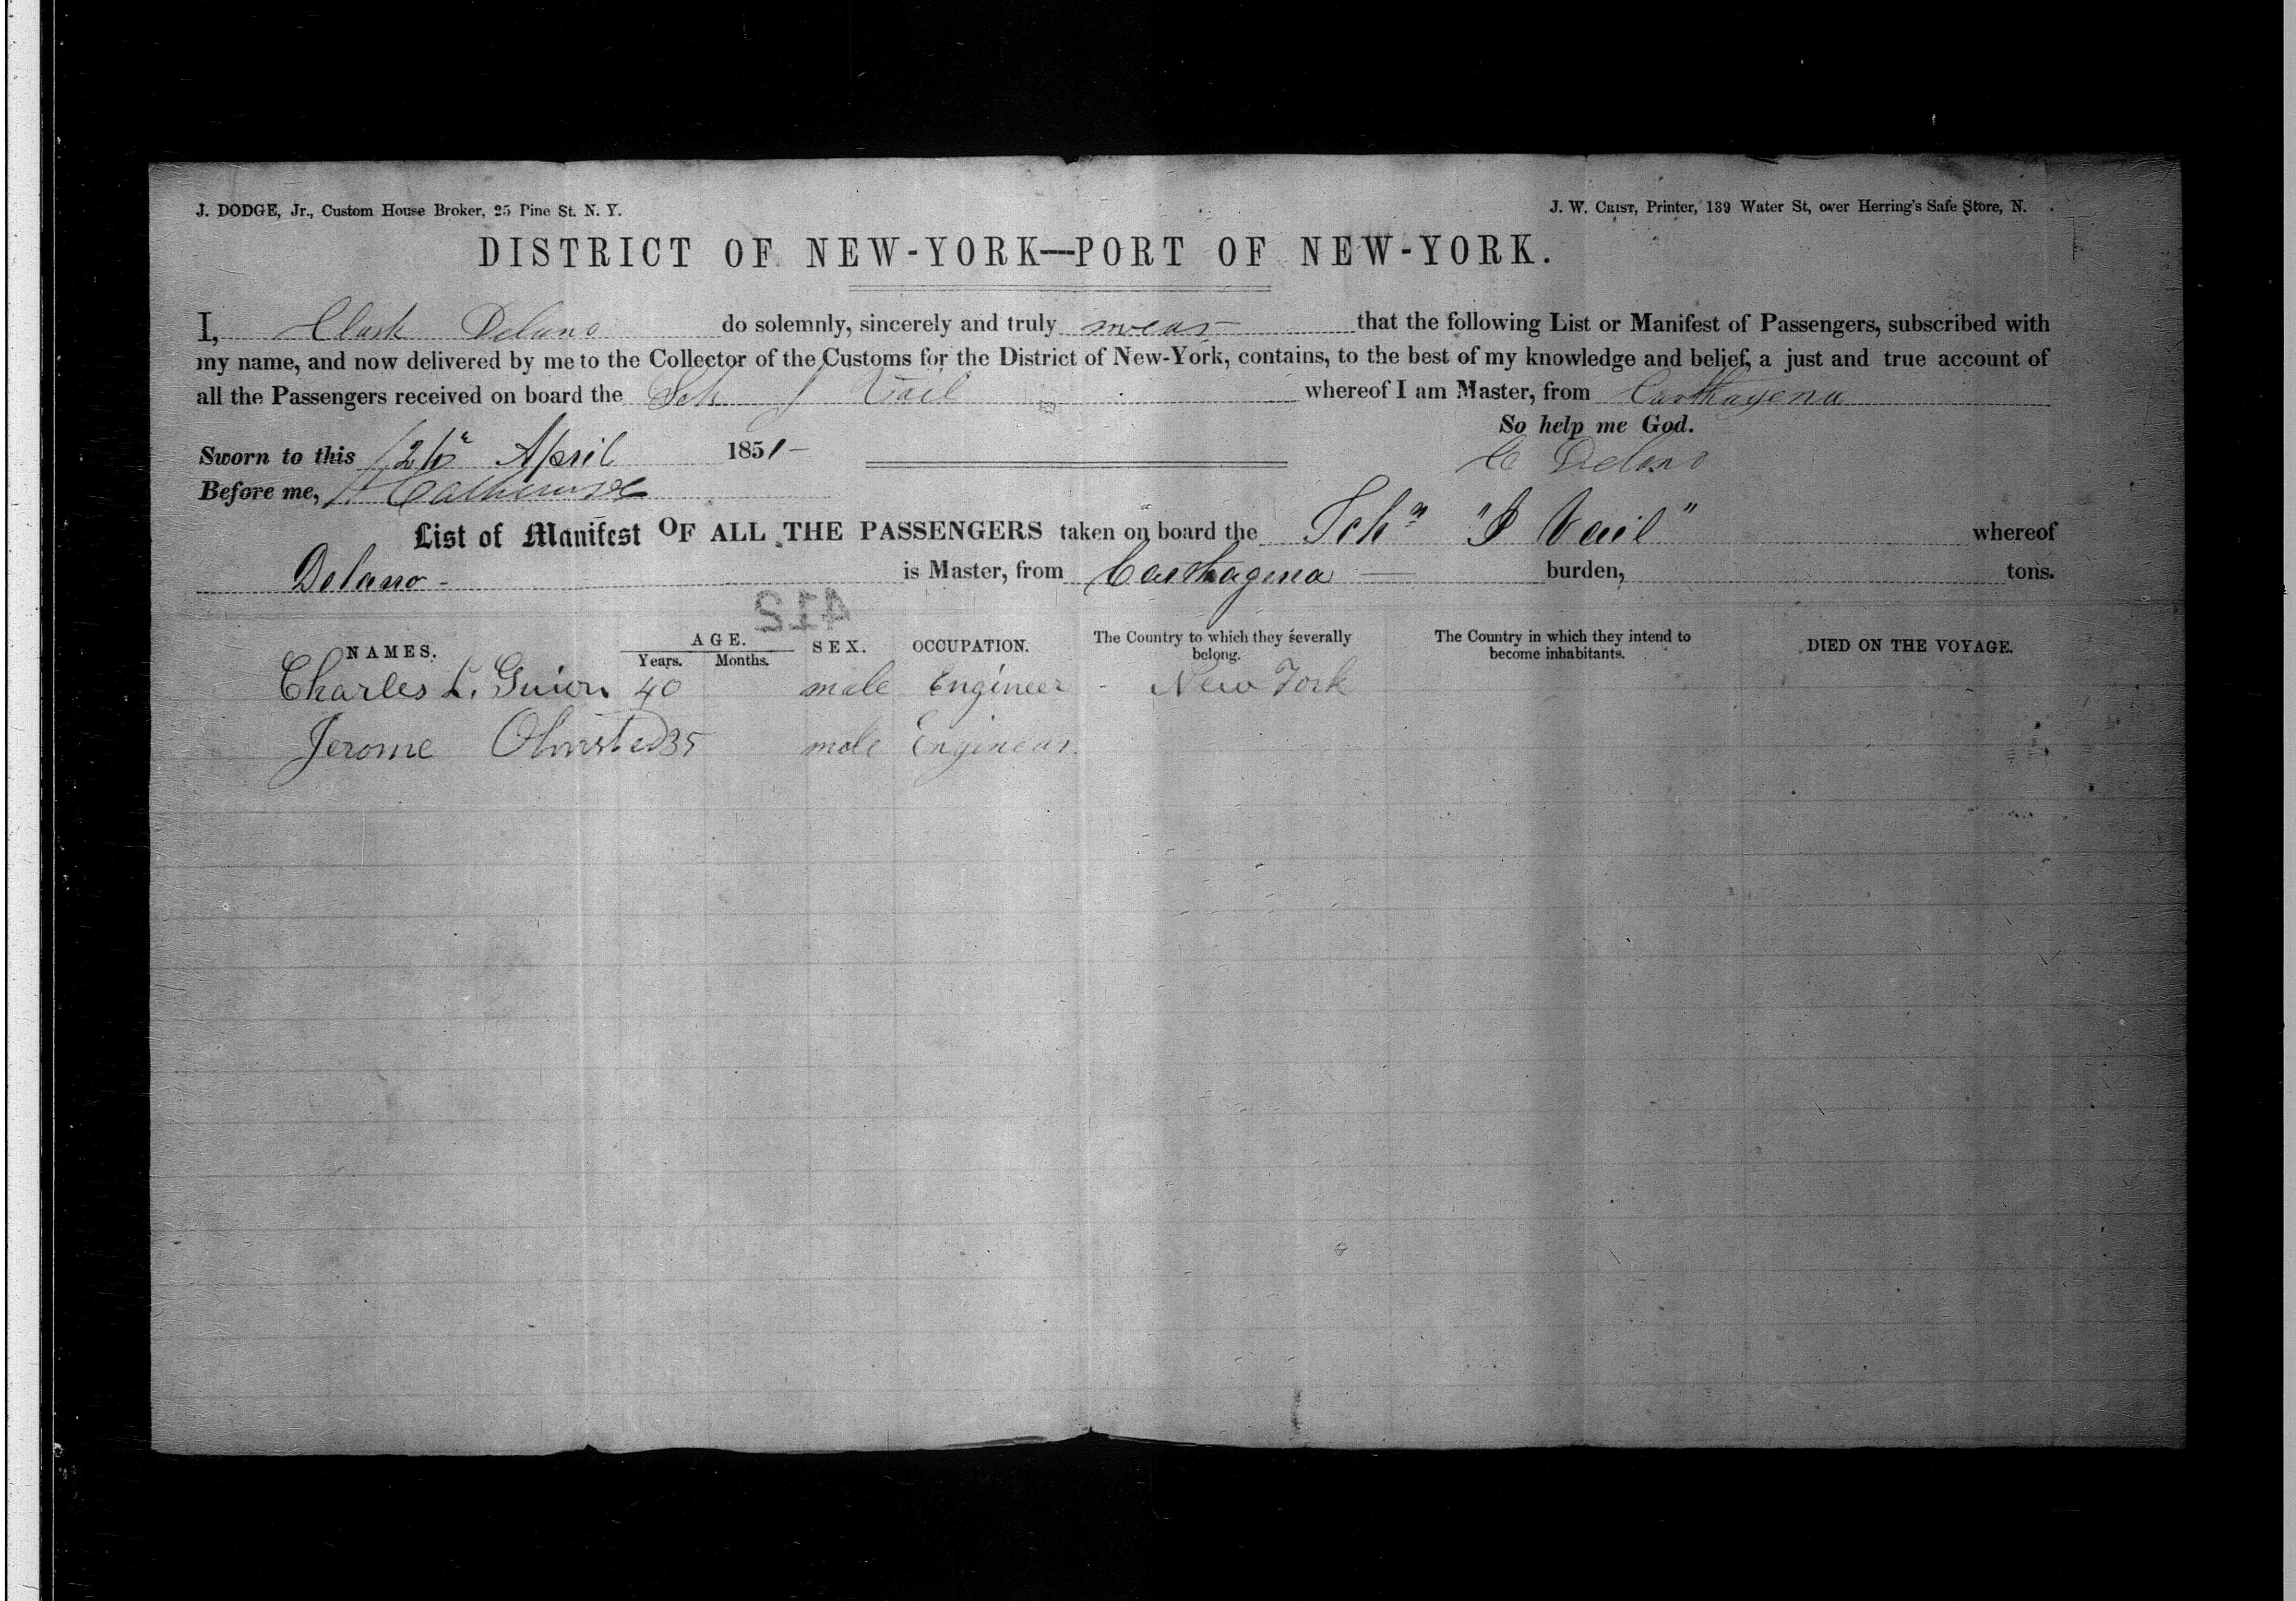 J. DODGE, Jr., Custom House Broker, 25 Pine St. N. Y.
J. W. CRIST, Printer, 139 Water St, over Herring's Safe Store, N.
DISTRICT OF NEW-YORK—PORT OF NEW-YORK.
I, Clark Delano do solemnly, sincerely and truly swear that the following List or Manifest of Passengers, subscribed with
my name, and now delivered by me to the Collector of the Customs for the District of New-York, contains, to the best of my knowledge and belief, a just and true account of
all the Passengers received on board the Sch J Vail whereof I am Master, from Carthagena
So help me God.
Sworn to this April 1851
C Delano
Before me,
List of Manifest OF ALL THE PASSENGERS taken on board the Schr "J Vail" whereof
Delano - is Master, from Carthagena — burden, tons.
412
NAMES. AGE. Years. Months. SEX. OCCUPATION. The Country to which they severally belong. The Country in which they intend to become inhabitants. DIED ON THE VOYAGE.
Charles L. Guion 40 male Engineer - New York
Jerome Olmsted 35 male Engineer